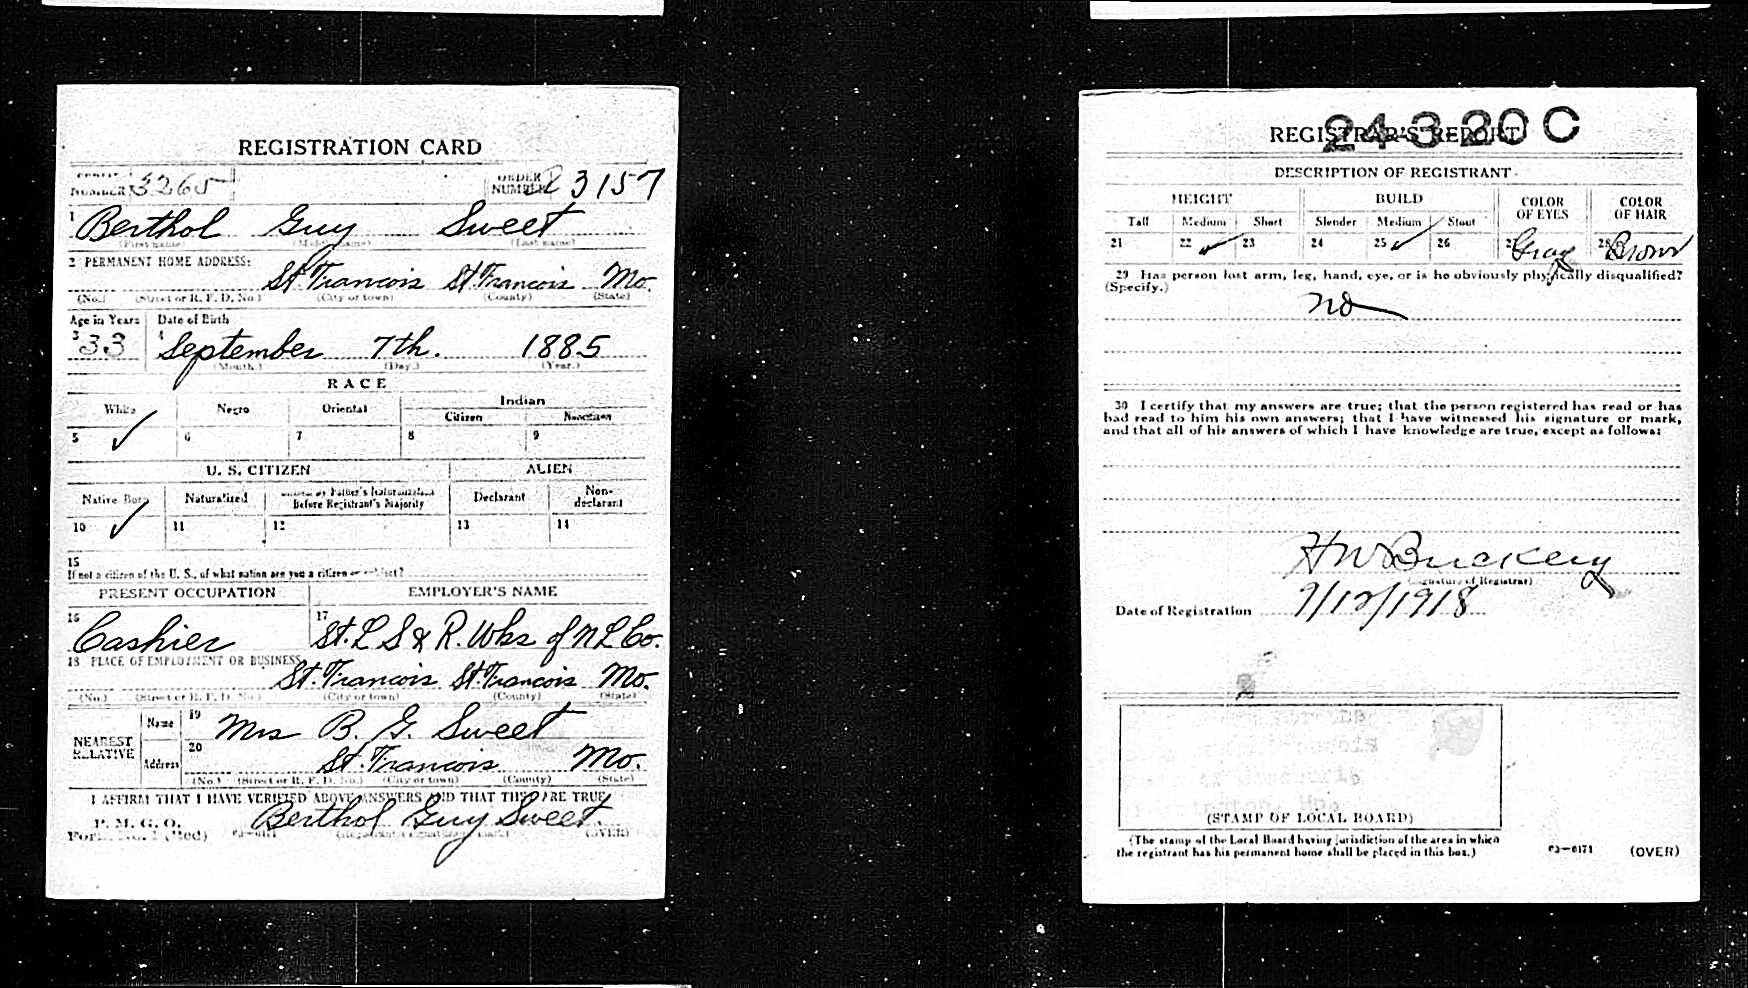 REGISTRATION CARD
NUMBER 3265 ORDER NUMBER 3157
1 Berthol Guy Sweet
(First name) (Middle name) (Last name)
2 PERMANENT HOME ADDRESS:
St. Francois St Francois Mo.
(No.) (Street or R. F. D. No.) (City or town) (County) (State)
Age in Years Date of Birth
3 33 4 September 7th. 1885
(Month.) (Day.) (Year.)
RACE
White Negro Oriental Indian
Citizen Noncitizen
5 ✓ 6 7 8 9
U. S. CITIZEN ALIEN
Native Born Naturalized Citizen by Father's Naturalization Before Registrant's Majority Declarant Non-declarant
10 ✓ 11 12 13 14
15
If not a citizen of the U. S., of what nation are you a citizen or subject?
PRESENT OCCUPATION EMPLOYER'S NAME
16 Cashier 17 St. L S & R. Wks of N L Co.
18 PLACE OF EMPLOYMENT OR BUSINESS
St. Francois St. Francois Mo.
(No.) (Street or R. F. D. No.) (City or town) (County) (State)
NEAREST RELATIVE
Name 19 Mrs B. G. Sweet
Address 20 St. Francois Mo.
(No.) (Street or R. F. D. No.) (City or town) (County) (State)
I AFFIRM THAT I HAVE VERIFIED ABOVE ANSWERS AND THAT THEY ARE TRUE
P. M. G. O.
Form No. 1 (Red) Berthol Guy Sweet (OVER)
REGISTRAR'S REPORT
24-3-20 C
DESCRIPTION OF REGISTRANT
HEIGHT BUILD COLOR OF EYES COLOR OF HAIR
Tall Medium Short Slender Medium Stout
21 22 ✓ 23 24 25 ✓ 26 27 Gray 28 Brown
29 Has person lost arm, leg, hand, eye, or is he obviously physically disqualified?
(Specify.)
no
30 I certify that my answers are true; that the person registered has read or has
had read to him his own answers; that I have witnessed his signature or mark,
and that all of his answers of which I have knowledge are true, except as follows:
(Signature of Registrar)
Date of Registration 9/12/1918
(STAMP OF LOCAL BOARD)
(The stamp of the Local Board having jurisdiction of the area in which
the registrant has his permanent home shall be placed in this box.)
03—6171 (OVER)